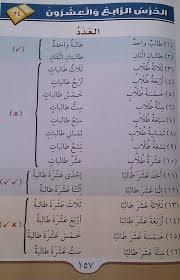 الدَّرْسُ الرَّابِعُ وَالْعِشْرُونَ
٢٤
العَدَدُ
(١) طَالِبٌ وَاحِدٌ طَالِبَةٌ وَاحِدَةٌ (✓)
(٢) طَالِبَانِ اثْنَانِ طَالِبَتَانِ اثْنَتَانِ
(٣) ثَلَاثَةُ طُلَّابٍ ثَلَاثُ طَالِبَاتٍ
(٤) أَرْبَعَةُ طُلَّابٍ أَرْبَعُ طَالِبَاتٍ
(٥) خَمْسَةُ طُلَّابٍ خَمْسُ طَالِبَاتٍ
(٦) سِتَّةُ طُلَّابٍ سِتُّ طَالِبَاتٍ (×)
(٧) سَبْعَةُ طُلَّابٍ سَبْعُ طَالِبَاتٍ
(٨) ثَمَانِيَةُ طُلَّابٍ ثَمَانِي طَالِبَاتٍ
(٩) تِسْعَةُ طُلَّابٍ تِسْعُ طَالِبَاتٍ
(١٠) عَشَرَةُ طُلَّابٍ عَشْرُ طَالِبَاتٍ
(١١) أَحَدَ عَشَرَ طَالِبًا إِحْدَى عَشْرَةَ طَالِبَةً (✓✓)
(١٢) اثْنَا عَشَرَ طَالِبًا اثْنَتَا عَشْرَةَ طَالِبَةً
(١٣) ثَلَاثَةَ عَشَرَ طَالِبًا ثَلَاثَ عَشْرَةَ طَالِبَةً
(١٤) أَرْبَعَةَ عَشَرَ طَالِبًا أَرْبَعَ عَشْرَةَ طَالِبَةً (✓×)
(١٥) خَمْسَةَ عَشَرَ طَالِبًا خَمْسَ عَشْرَةَ طَالِبَةً
(١٦) سِتَّةَ عَشَرَ طَالِبًا سِتَّ عَشْرَةَ طَالِبَةً
١٥٧